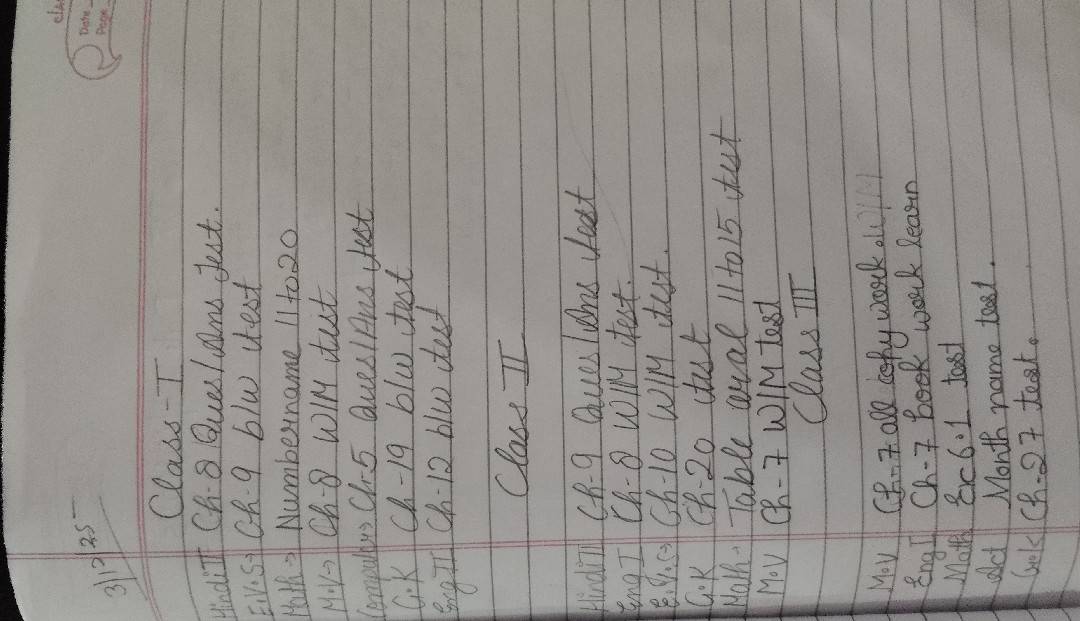 Date
Page
3/12/25
Class-I
Hindi II Ch-8 Ques/Ans Test.
E.V.S→ Ch-9 b/w test
Math→ Numbername 11 to 20
M.V→ Ch-8 W/M test
Computer→ Ch-5 Ques/Ans test
G.K Ch-19 b/w test
Eng II Ch-12 b/w test
Class II
Hindi II Ch-9 Ques/Ans test
Eng I Ch-8 W/M test.
E.V.S→ Ch-10 W/M test.
G.K Ch-20 test
Math→ Table oral 11 to 15 test
M.V Ch-7 W/M test
Class III
M.V Ch-7 all copy work. W/M
Eng I Ch-7 book work learn
Math Ex 6.1 test
Act Month name test.
G.K Ch-27 test.